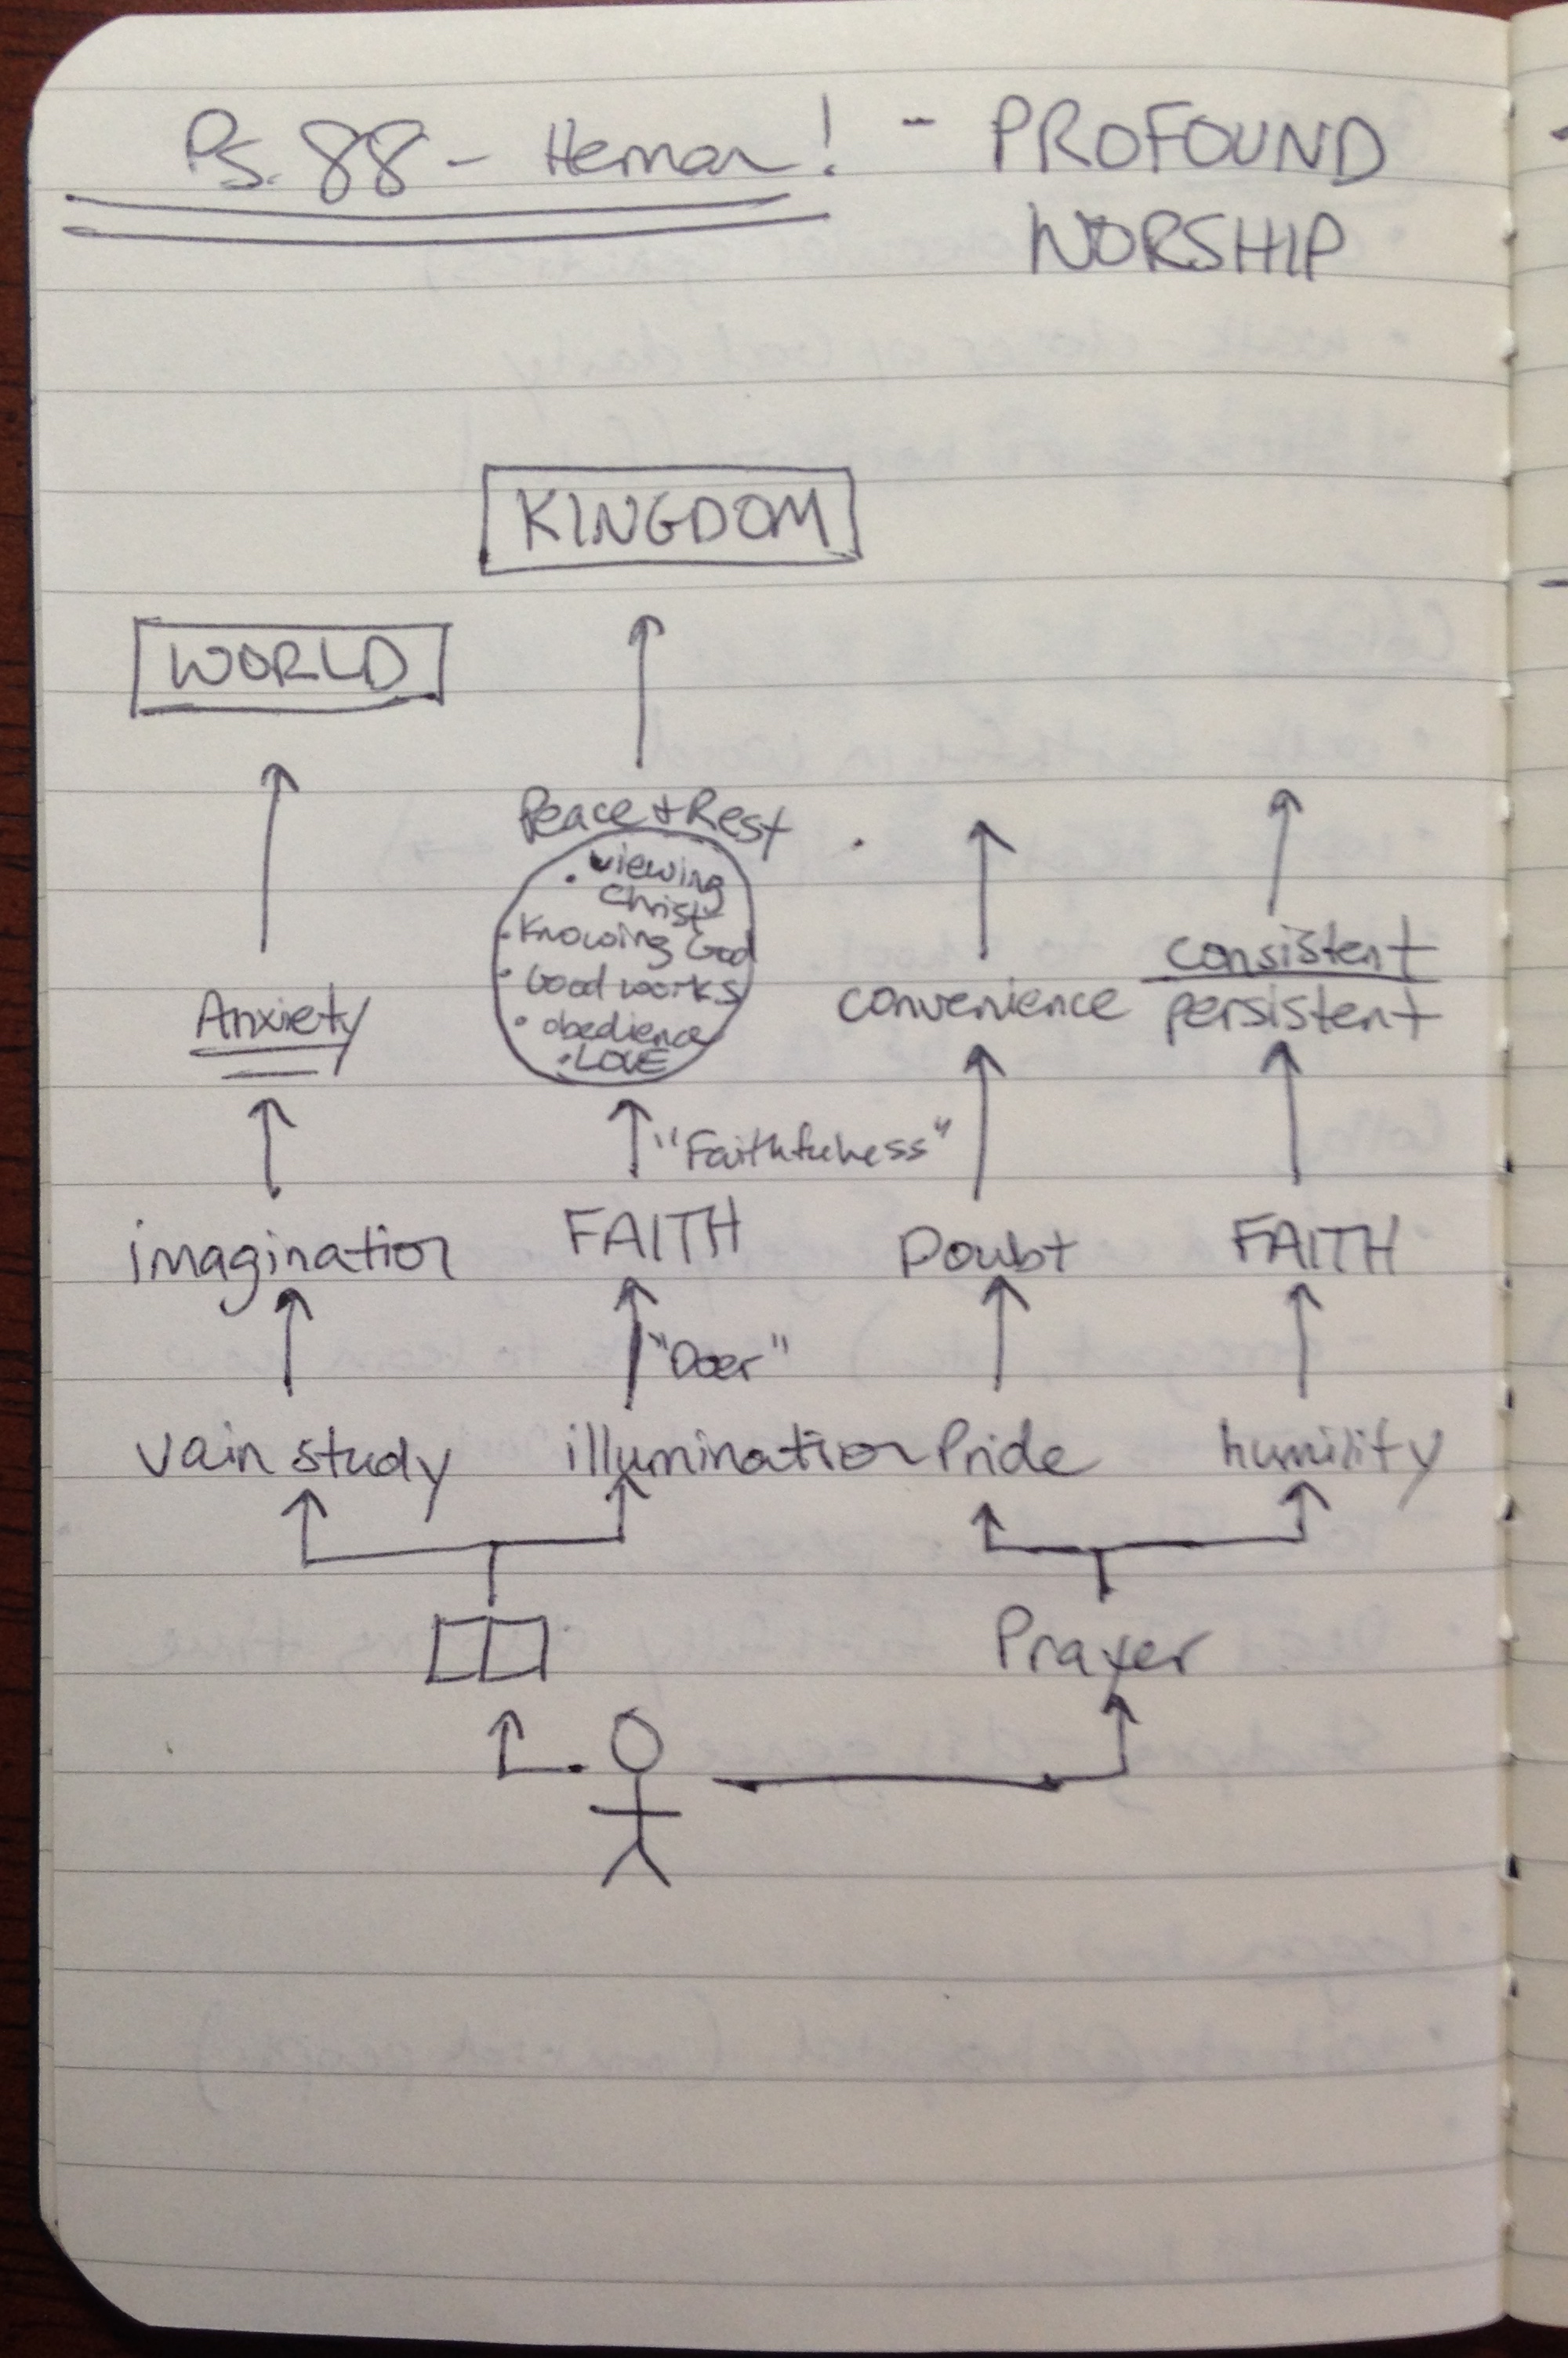 Ps. 88 - Heman! - PROFOUND
WORSHIP
KINGDOM
WORLD
Peace + Rest
• viewing
Christ
• Knowing God
• Good works
• obedience
• LOVE
Anxiety
convenience
consistent
persistent
"Faithfulness"
imagination
FAITH
Doubt
FAITH
"Doer"
vain study
illumination
Pride
humility
Prayer